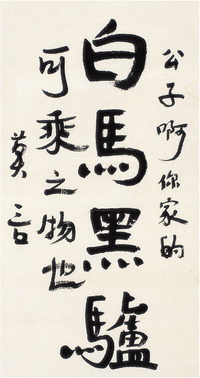 公子啊你家的
白馬黑驢
可乘之物也
莫言